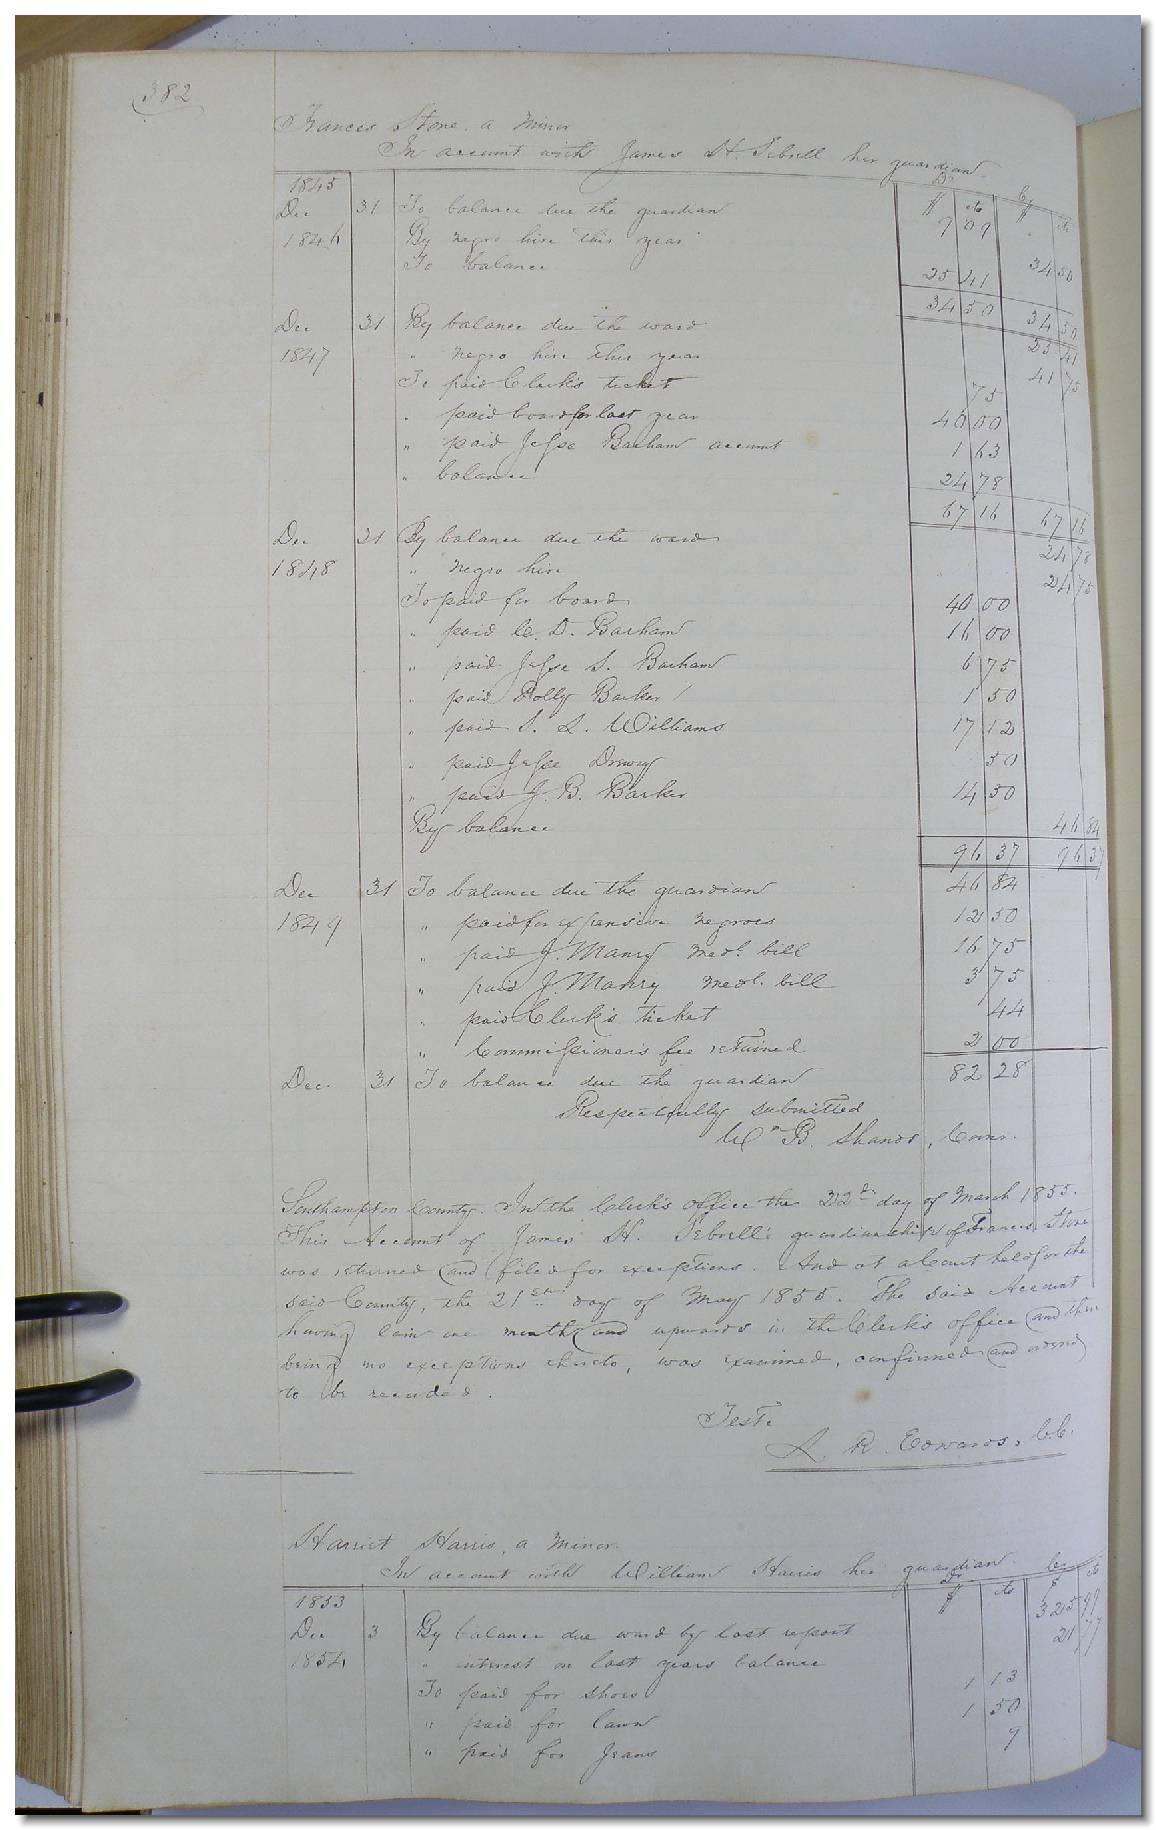 382
Frances Stone, a minor
In account with James H. Sebrell her guardian.
Dr Cr
1845 $ cts $ cts
Dec 31 To balance due the guardian 9 09
1846 By negro hire this year 34 50
To balance 25 41
34 50 34 50
Dec 31 By balance due the ward 25 41
1847 " negro hire this year 41 75
To paid Clerk's ticket 75
" paid board for last year 40 00
" paid Jesse Barham account 1 63
" balance 24 78
67 16 67 16
Dec 31 By balance due the ward 24 78
1848 " negro hire 24 75
To paid for board 40 00
" paid C. D. Barham 16 00
" paid Jesse S. Barham 6 75
" paid Polly Barker 1 50
" paid S. L. Williams 17 12
" paid Jesse Drewry 50
" paid J. B. Barker 14 50
By balance 46 84
96 37 96 37
Dec 31 To balance due the guardian 46 84
1849 " paid for expensive negroes 12 50
" paid J. Manry med. bill 16 75
" paid J. Manry med. bill 3 75
" paid Clerk's ticket 44
" Commissioner's fee retained 2 00
Dec 31 To balance due the guardian 82 28
Respectfully submitted
Wm B. Shands, Comr.
Southampton County. In the Clerk's office the 22d day of March 1855.
This Account of James H. Sebrell's guardianship of Frances Stone
was returned and filed for exceptions. And at a Court held for the
said County, the 21st day of May 1855. The said Account
having lain one month and upwards in the Clerk's office and there
being no exceptions thereto, was examined, confirmed and ordered
to be recorded.
Teste
L. R. Edwards, C.C.
Harriet Harris, a minor
In account with William Harris her guardian.
Dr Cr
1853 $ cts $ cts
Dec 3 By balance due ward by last report 325 99
1854 " interest on last years balance 21 77
To paid for shoes 1 13
" paid for lawn 1 50
" paid for Jeans 9